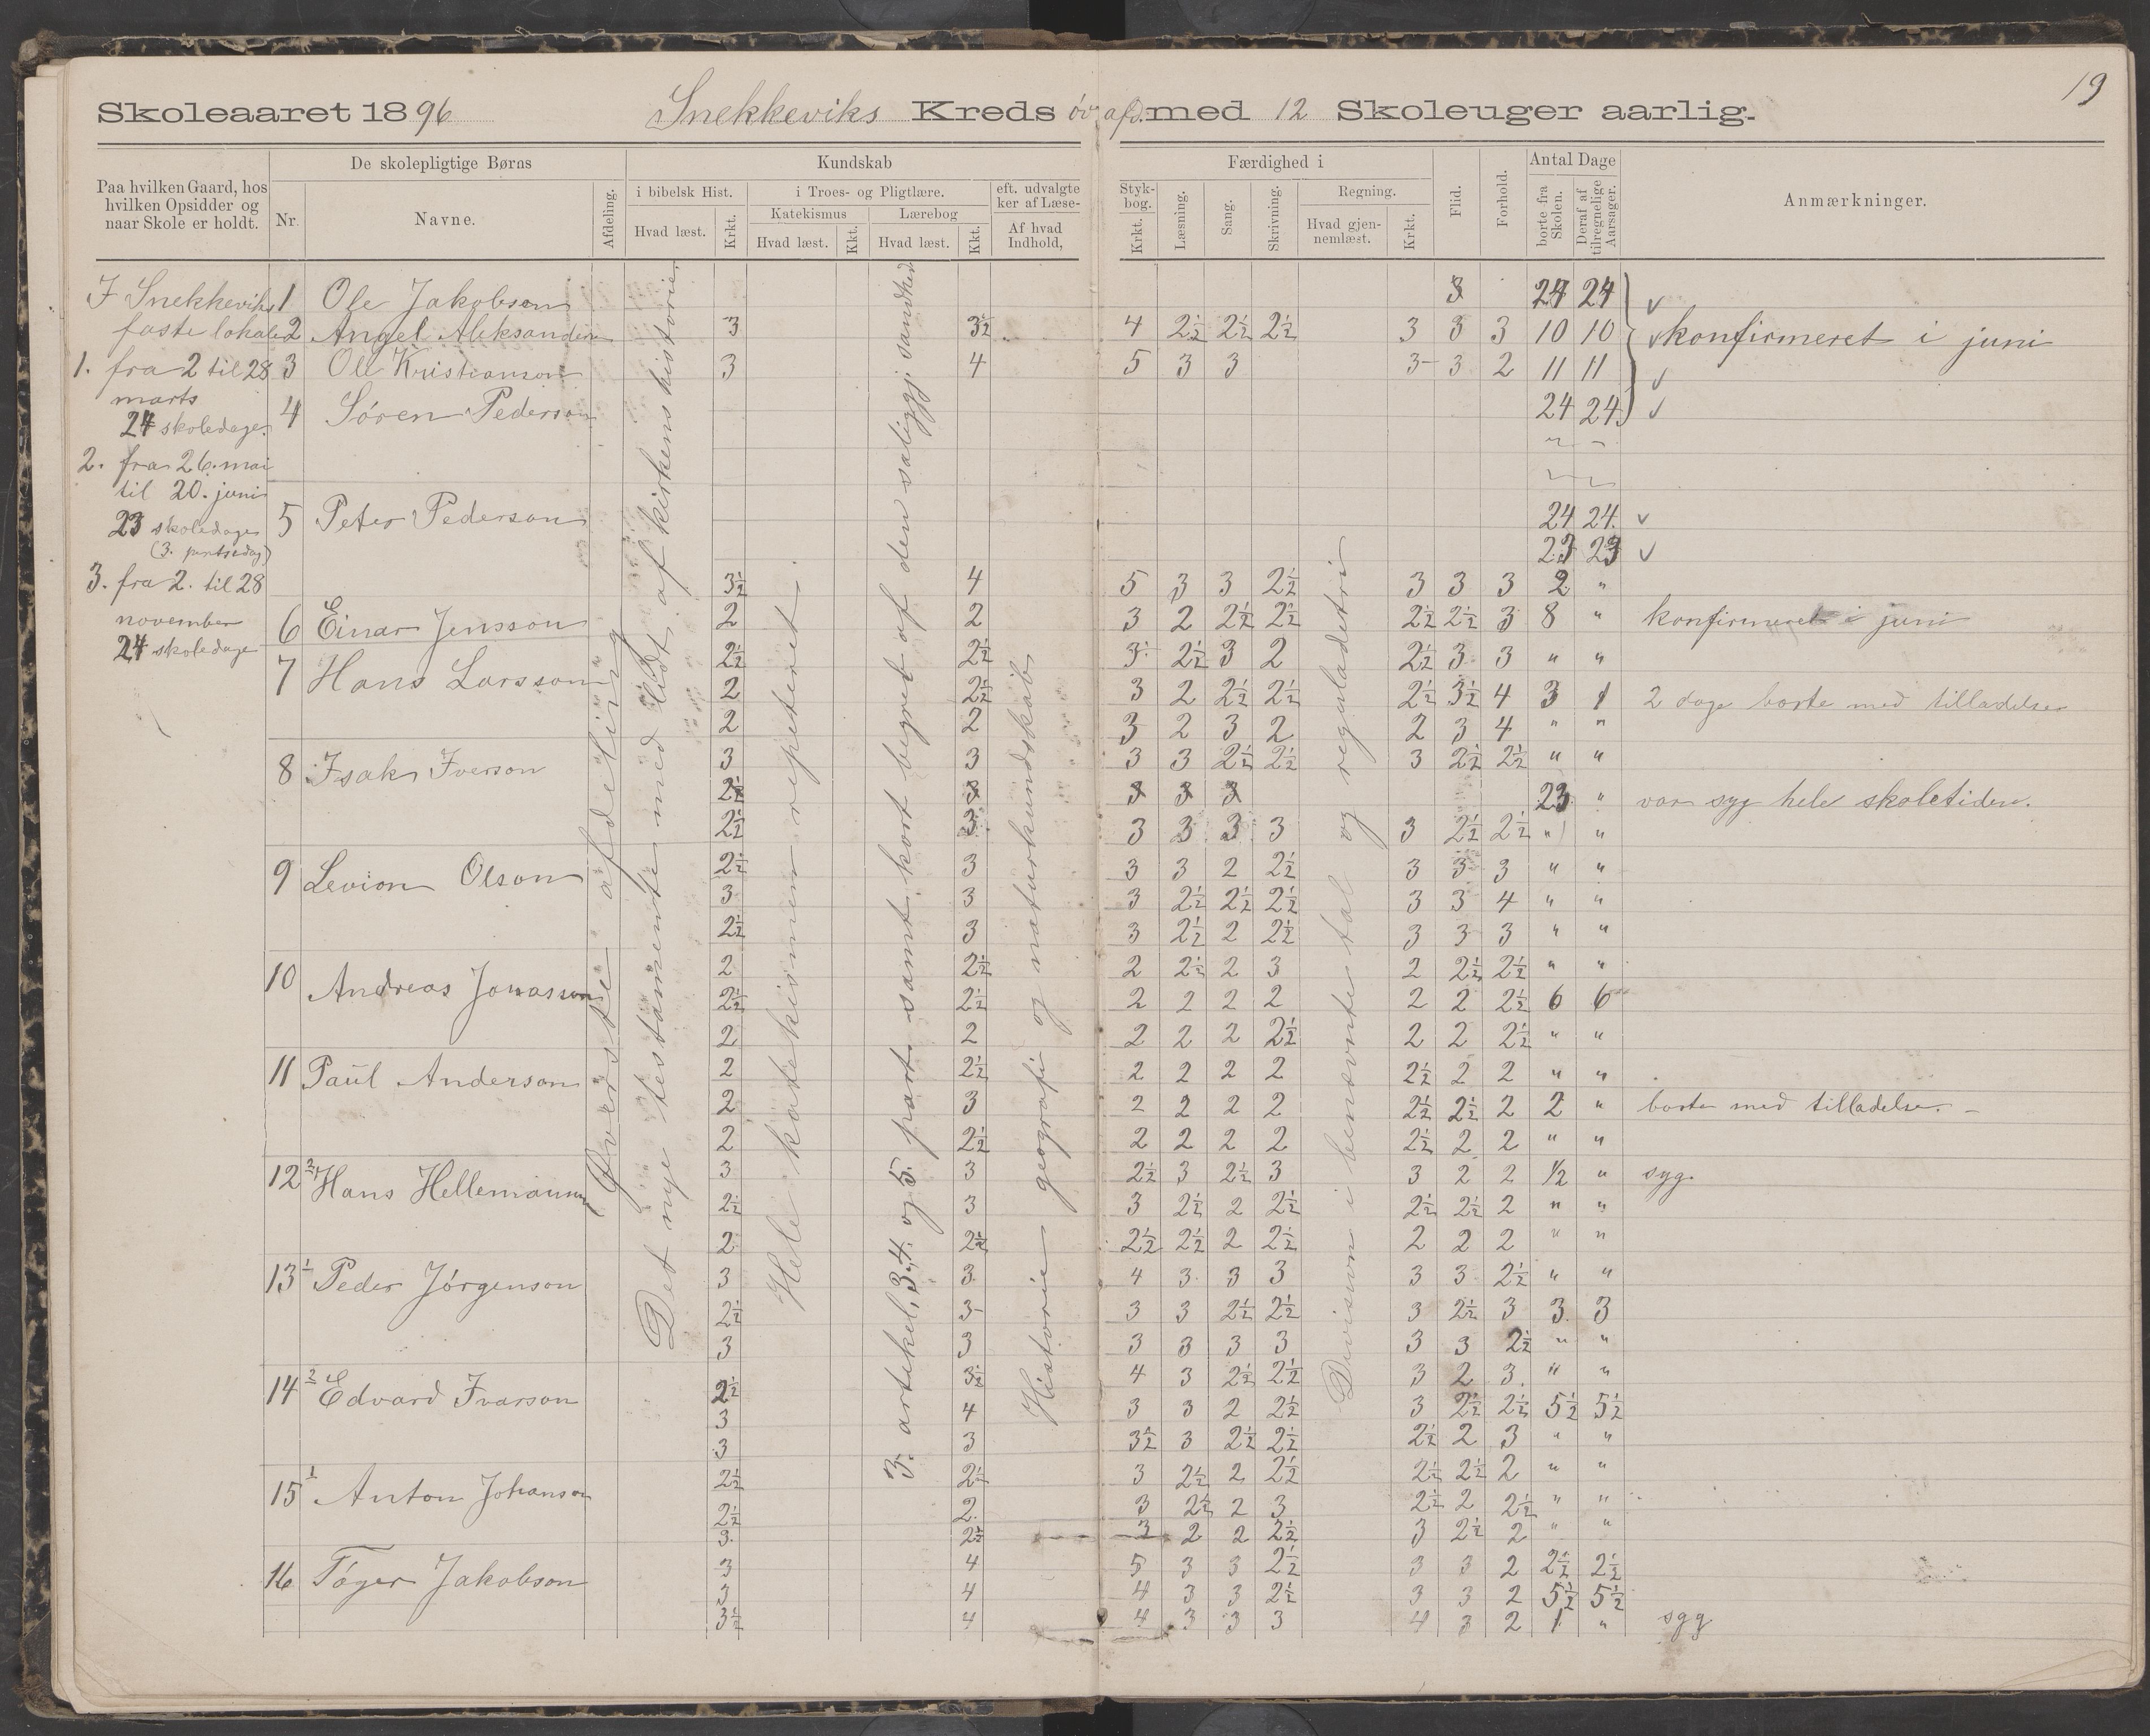 19
Skoleaaret 1896 Snekkeviks Kreds øv. afd. med 12 Skoleuger aarlig.
Paa hvilken Gaard, hos hvilken Opsidder og naar Skole er holdt.
De skolepligtige Børns
Nr. Navne.
Afdeling.
Kundskab
i bibelsk Hist.
Hvad læst. Krkt.
i Troes- og Pligtlære.
Katekismus Lærebog
Hvad læst. Kkt. Hvad læst. Kkt.
eft. udvalgte
ker af Læse-
Af hvad Indhold,
Færdighed i
Styk-
bog.
Krkt. Læsning. Sang. Skrivning.
Regning.
Hvad gjen-
nemlæst. Krkt.
Flid. Forhold.
Antal Dage
borte fra Skolen. Deraf af tilregnelige Aarsager.
Anmærkninger.
I Snekkeviks
faste lokale
1. fra 2 til 28
marts
24 skoledage.
2. fra 26. mai
til 20. juni
23 skoledage
3. fra 2. til 28
november
24 skoledage
Øverste afdeling
Det nye testamente med lidt af kirkens historie.
Hele katekismen repeteret.
3. artikel, 3. 4. og 5. part samt kort begreb af den saliggj. sandhed
Historie geografi og naturkundskab
Division i benævnte tal og reguladetri
1 Ole Jakobson 3 24 24
2 Angel Aleksanderson 3 3½ 4 2½ 2½ 2½ 3 3 3 10 10 konfirmeret i juni
3 Ole Kristianson 3 4 5 3 3 3- 3 2 11 11
4 Søren Pederson 24 24
5 Peter Pederson 24 24
23 23
3½ 4 5 3 3 2½ 3 3 3 2 "
6 Einar Jensson 2 2 3 2 2½ 2½ 2½ 2½ 3 8 " konfirmeret i juni
7 Hans Larsson 2½ 2½ 3 2½ 3 2 2½ 3 3 " "
2 2½ 3 2 2½ 2½ 2½ 3½ 4 3 1 2 dage borte med tilladelse
2 2 3 2 3 2 2 3 4 " "
8 Isak Iverson 3 3 3 3 2½ 2½ 3 2½ 2½ " "
2½ 3 3 3 3 23 " var syg hele skoletiden.
2½ 3 3 3 3 3 3 2½ 2½ " "
9 Levion Olson 2½ 3 3 3 2 2½ 3 3 3 " "
3 3 3 2½ 2½ 2½ 3 3 4 " "
2½ 3 3 2½ 2 2½ 3 3 3 " "
10 Andreas Jonasson 2 2½ 2 2½ 2 3 2 2½ 2½ " "
2½ 2½ 2 2 2 2 2 2 2½ 6 6
2 2 2 2 2 2½ 2 2 2½ " "
11 Paul Anderson 2 2½ 2 2 2 2 2½ 2 2 " "
2 3 2 2 2 2 2½ 2½ 2 2 " borte med tilladelse.
2 2½ 2 2 2 2 2½ 2 2 " "
12 Hans Hellemann 3 3 2½ 3 2½ 3 3 2 2 ½ " syg.
2½ 3 3 2½ 2 2½ 2½ 2½ 2 " "
2 2½ 2½ 2½ 2 2½ 2 2 2 " "
13 Peder Jørgenson 3 3 4 3 3 3 3 3 2½ " "
2½ 3- 3 3 2½ 2½ 3 2½ 3 3 3
3 3 3 3 3 3 3 3 2½ " "
14 Edvard Ivarson 2½ 3½ 4 3 2½ 2½ 3 2 3 " "
3 4 3 3 2 2½ 3 2½ 2½ 5½ 5½
3 3 3½ 3 2½ 2½ 2½ 2 3 " "
15 Anton Johanson 2½ 2½ 3 2½ 2 2½ 2½ 2½ 2 " "
2½ 2 3 2½ 2 3 2½ 2 2½ " "
3 2½ 3 2 2 2½ 3 2½ 2 " "
16 Tøger Jakobson 3 4 5 3 3 2½ 3 3 2 2½ 2½
3 4 4 3 3 2½ 3 3 2 5½ 5½
3½ 4 4 3 3 3 4 3 2 1 " syg